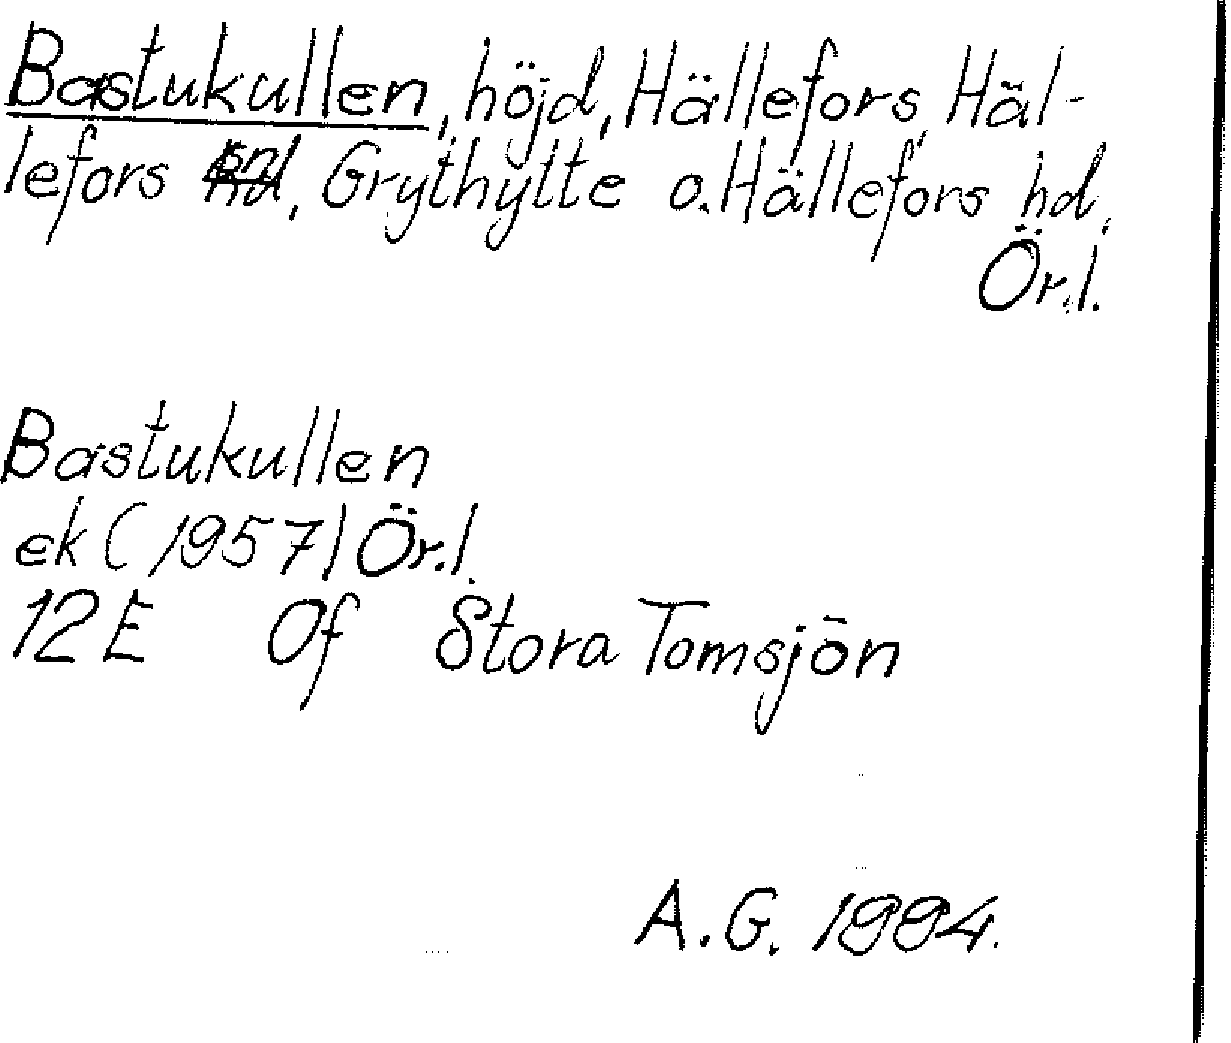 Bastukullen, höjd, Hällefors, Häl-
lefors snd, Grythytte o. Hällefors hd,
Ör.l.
Bastukullen
ek (1957) Ör.l.
12E 0f Stora Tomsjön
A.G. 1994.